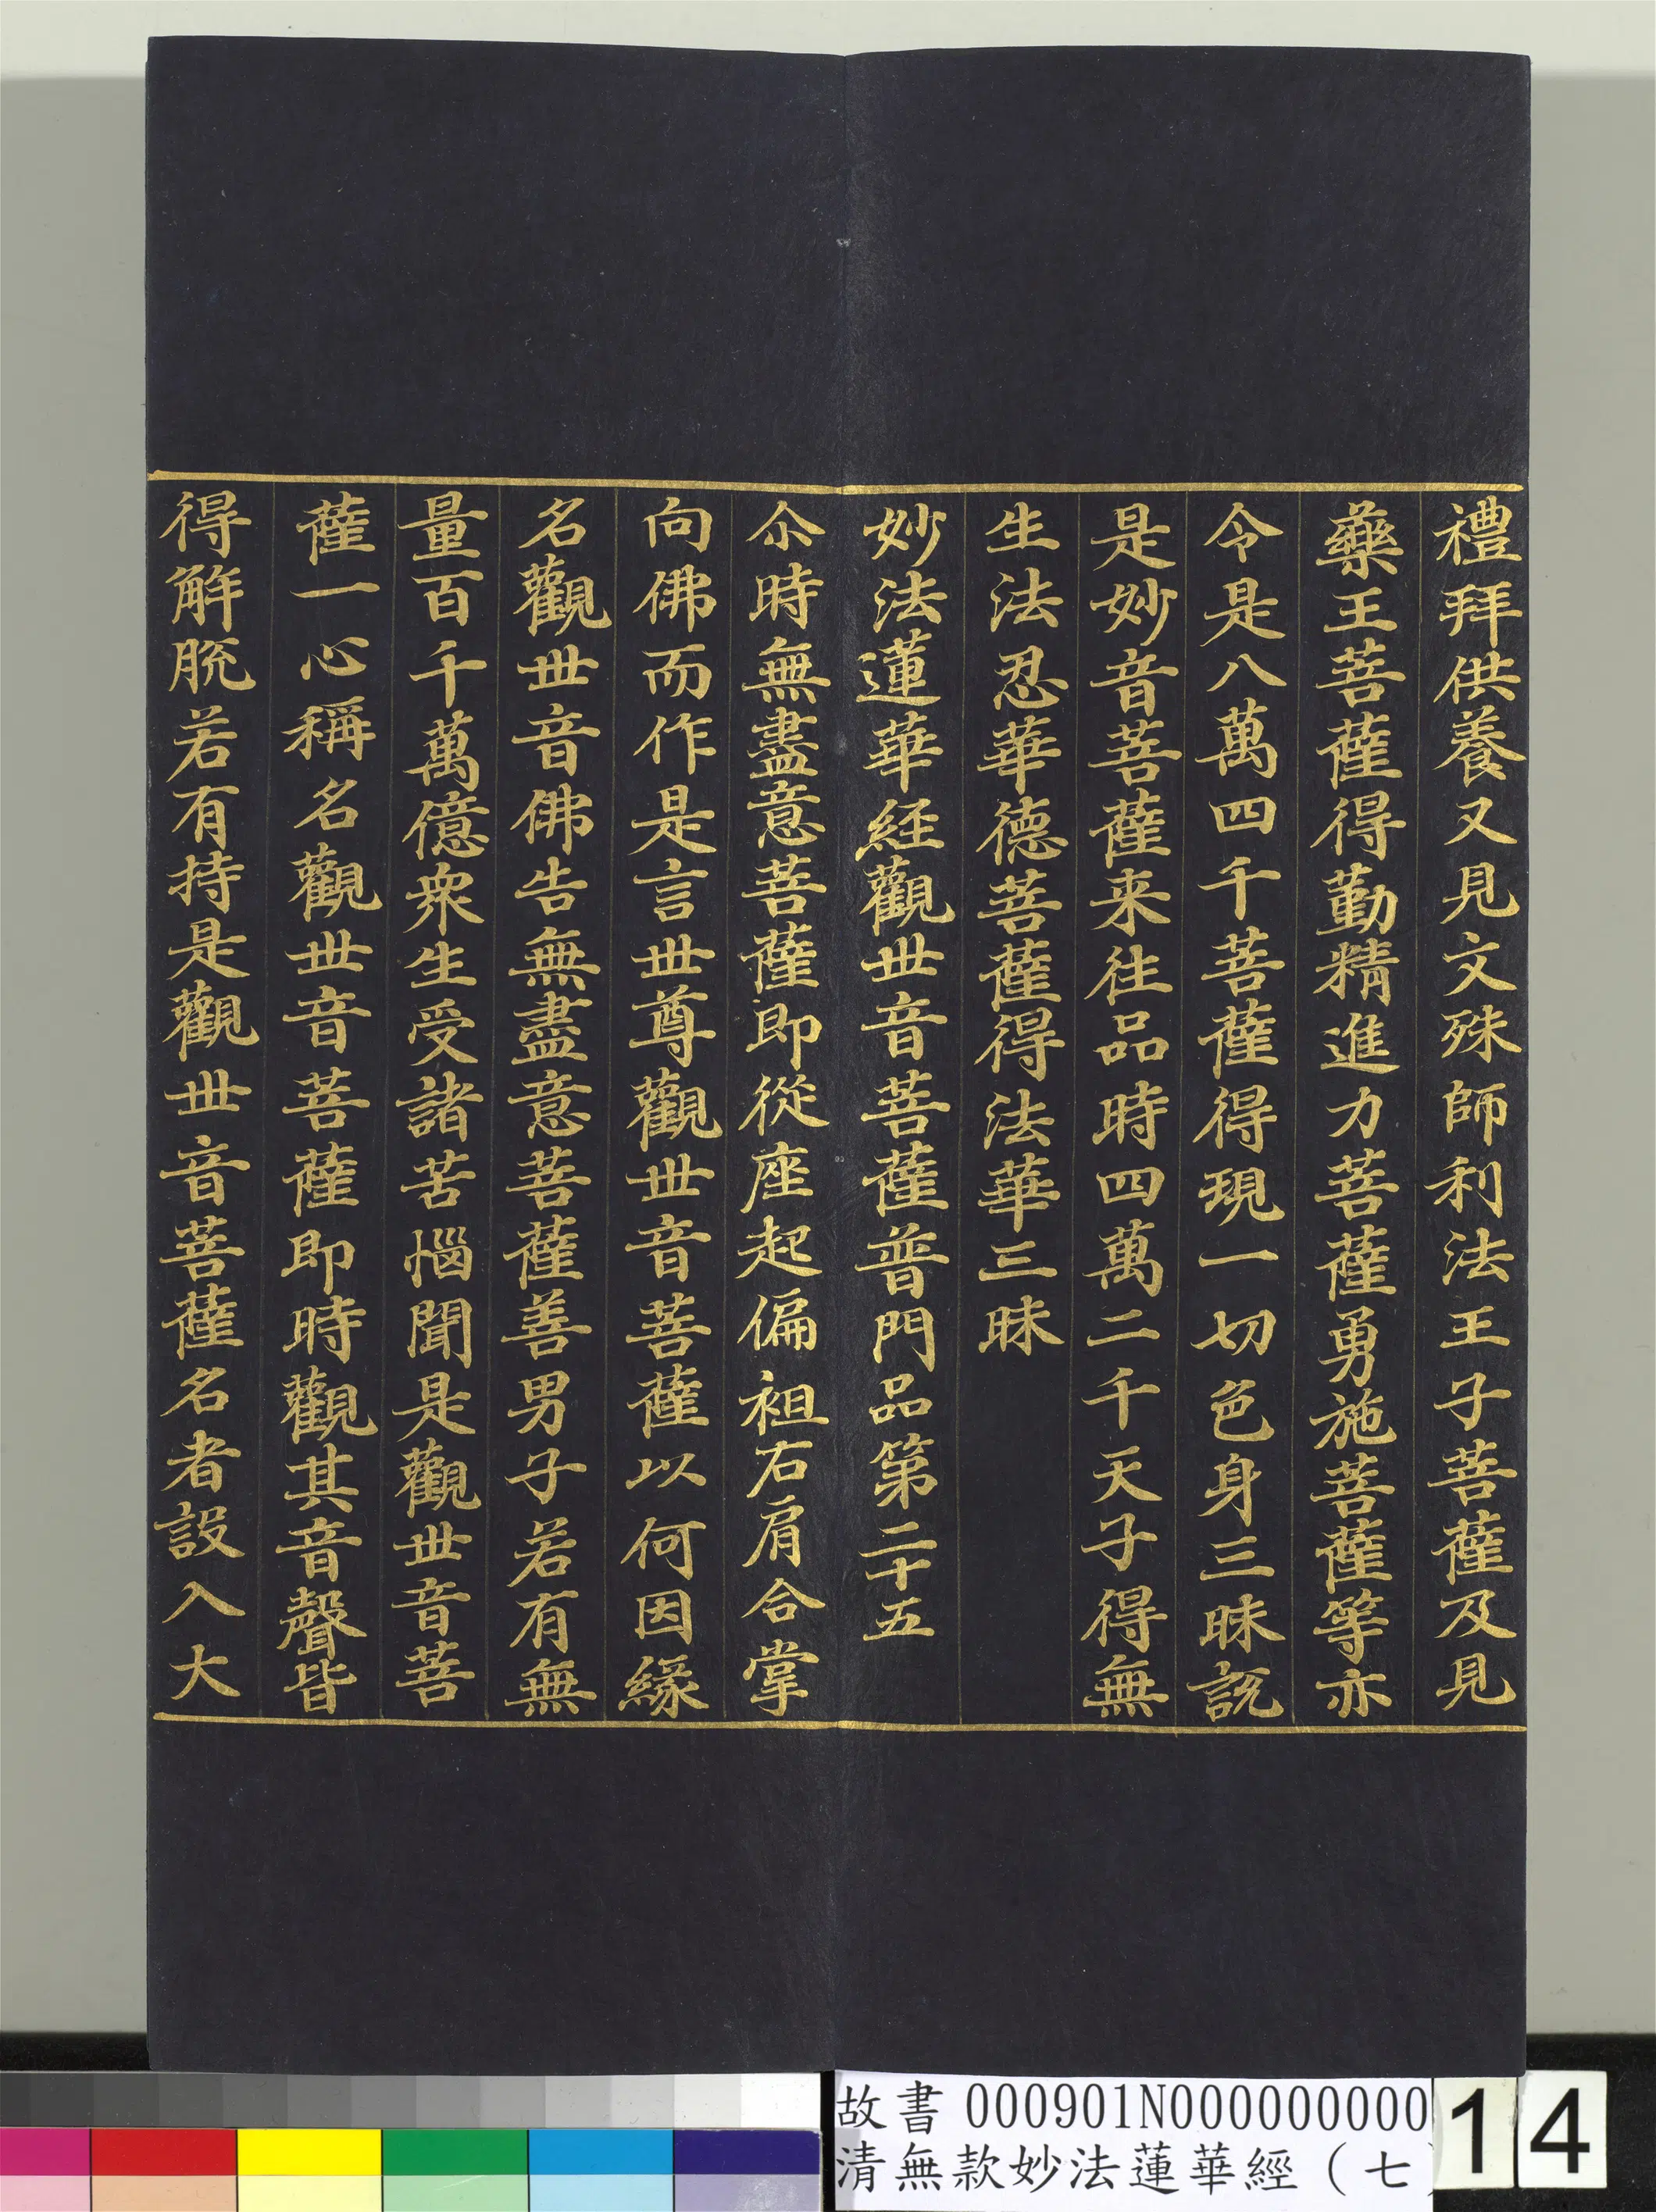 禮拜供養又見文殊師利法王子菩薩及見
藥王菩薩得勤精進力菩薩勇施菩薩等亦
令是八萬四千菩薩得現一切色身三昧説
是妙音菩薩来往品時四萬二千天子得無
生法忍華德菩薩得法華三昧
妙法蓮華經觀世音菩薩普門品第二十五
尒時無盡意菩薩即從座起偏袒右肩合掌
向佛而作是言世尊觀世音菩薩以何因緣
名觀世音佛告無盡意菩薩善男子若有無
量百千萬億衆生受諸苦惱聞是觀世音菩
薩一心稱名觀世音菩薩即時觀其音聲皆
得解脫若有持是觀世音菩薩名者設入大
故書 000901N000000000
清無款妙法蓮華經（七
14